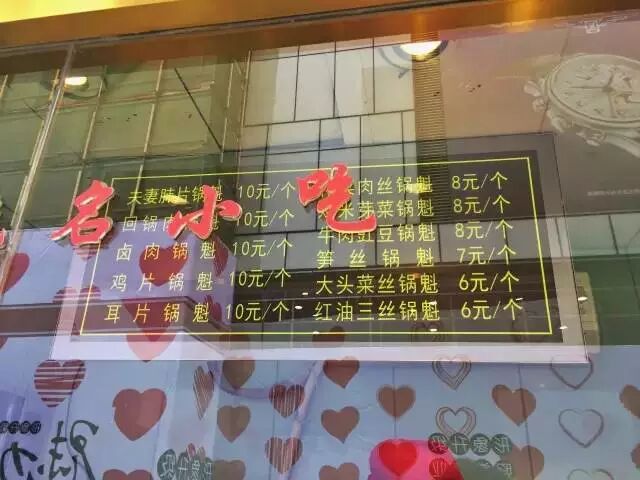 名小吃
夫妻肺片锅魁 10元/个
回锅肉锅魁 10元/个
卤肉锅魁 10元/个
鸡片锅魁 10元/个
耳片锅魁 10元/个
肉丝锅魁 8元/个
米芽菜锅魁 8元/个
牛肉豇豆锅魁 8元/个
笋丝锅魁 7元/个
大头菜丝锅魁 6元/个
红油三丝锅魁 6元/个
形象升级